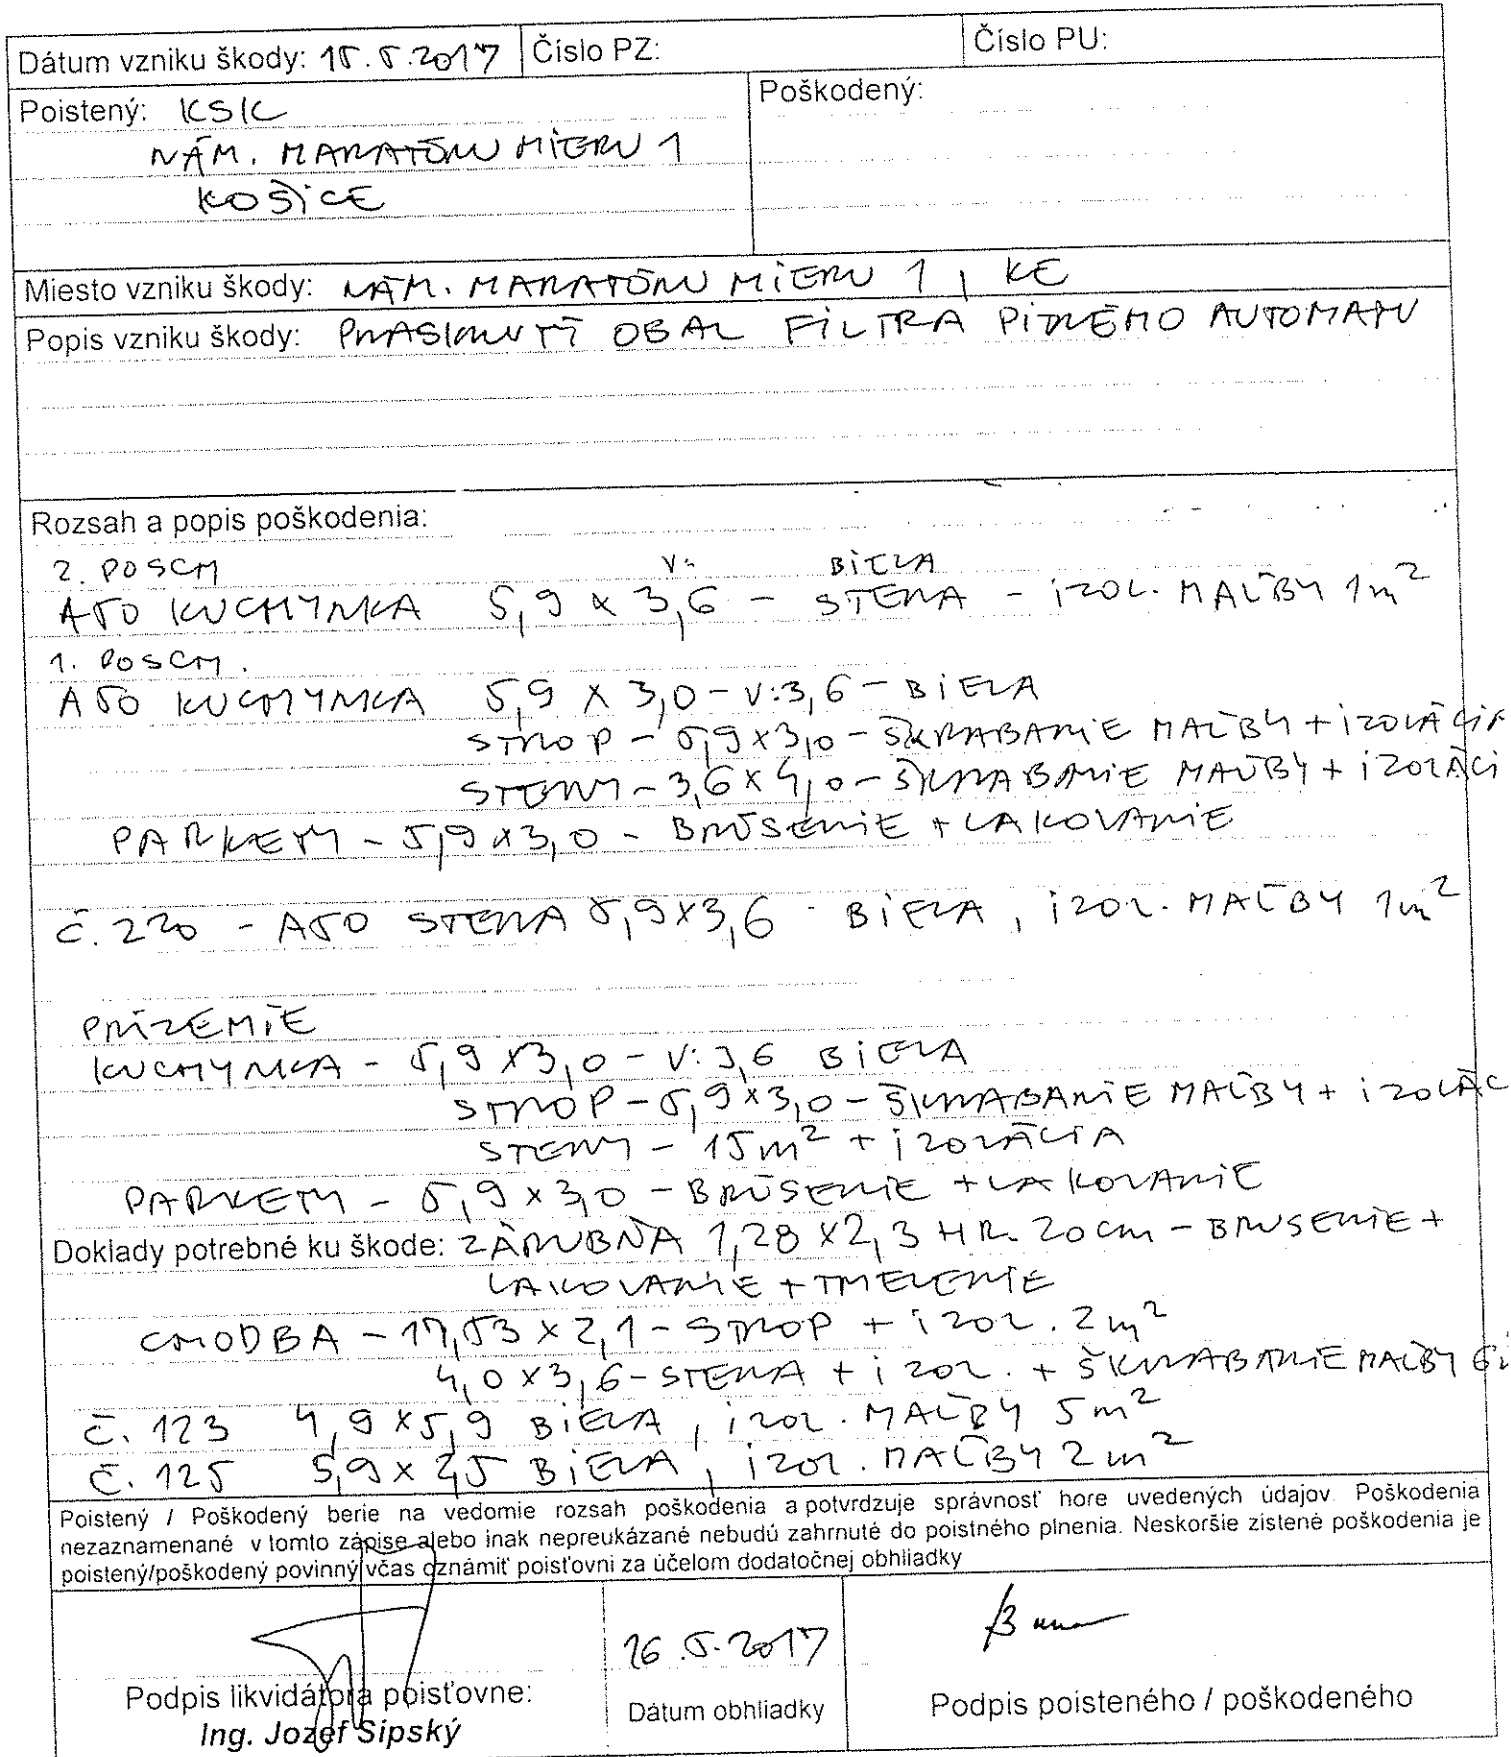 Dátum vzniku škody: 15.5.2017 Číslo PZ: Číslo PU:
Poistený: KSK Poškodený:
NÁM. MARATÓNU MIERU 1
KOŠICE
Miesto vzniku škody: NÁM. MARATÓNU MIERU 1, KE
Popis vzniku škody: PRASKNUTÝ OBAL FILTRA PITNÉHO AUTOMATU
Rozsah a popis poškodenia:
2. POSCH V: BIELA
A50 KUCHYNKA 5,9 x 3,6 - STENA - IZOL. MAĽBY 1m²
1. POSCH.
A50 KUCHYNKA 5,9 x 3,0 - V:3,6 - BIELA
STROP - 5,9x3,0 - ŠKRABANIE MAĽBY + IZOLÁCIA
STENY - 3,6x4,0 - ŠKRABANIE MAĽBY + IZOLÁCI
PARKETY - 5,9x3,0 - BRÚSENIE + LAKOVANIE
Č.220 - A50 STENA 5,9x3,6 - BIELA, IZOL. MAĽBY 1m²
PRÍZEMIE
KUCHYNKA - 5,9x3,0 - V:3,6 BIELA
STROP - 5,9x3,0 - ŠKRABANIE MAĽBY + IZOLÁC
STENY - 15m² + IZOLÁCIA
PARKETY - 5,9x3,0 - BRÚSENIE + LAKOVANIE
Doklady potrebné ku škode: ZÁRUBŇA 1,28x2,3 HR. 20cm - BRUSENIE +
LAKOVANIE + TMELENIE
CHODBA - 17,53x2,1 - STROP + IZOL. 2m²
4,0x3,6 - STENA + IZOL. + ŠKRABANIE MAĽBY
Č. 123 4,9x5,9 BIELA, IZOL. MAĽBY 5m²
Č. 125 5,9x2,5 BIELA, IZOL. MAĽBY 2m²
Poistený / Poškodený berie na vedomie rozsah poškodenia a potvrdzuje správnosť hore uvedených údajov. Poškodenia
nezaznamenané v tomto zápise alebo inak nepreukázané nebudú zahrnuté do poistného plnenia. Neskoršie zistené poškodenia je
poistený/poškodený povinný včas oznámiť poisťovni za účelom dodatočnej obhliadky
16.5.2017
Podpis likvidátora poisťovne: Dátum obhliadky Podpis poisteného / poškodeného
Ing. Jozef Sipský